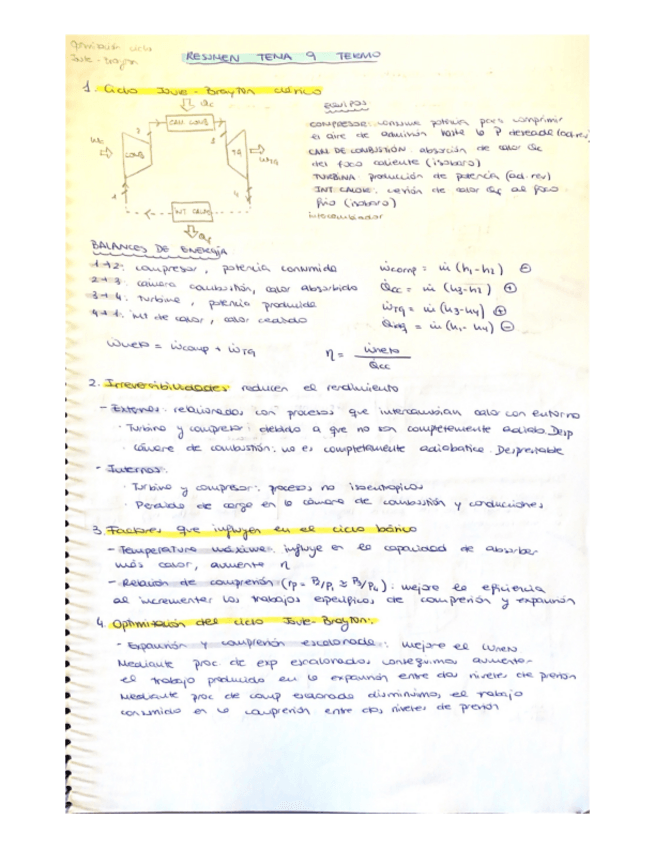 RESUMEN TEMA 9 TERMO
1. Ciclo Joule-Brayton básico
Qcc
CAM COMB
2
3
COMP
TG
1
4
INT CALOR
EQUIPOS
COMPRESOR: consume potencia para comprimir
el aire de admisión hasta la P deseada
CAM DE COMBUSTIÓN: absorción de calor Qcc
del foco caliente (isobaro)
TURBINA: producción de potencia (ad. rev)
INT CALOR: cesión de calor al foco
frío (isobaro)
intercambiador
BALANCES DE ENERGÍA
1→2: compresor, potencia consumida
Ẇcomp = ṁ (h1-h2) ⊖
2→3: cámara combustión, calor absorbido
Q̇cc = ṁ (h3-h2) ⊕
3→4: turbina, potencia producida
ẆTG = ṁ (h3-h4) ⊕
4→1: int de calor, calor cedido
= ṁ (h1-h4) ⊖
Ẇneto = Ẇcomp + ẆTG
η = Ẇneto / Q̇cc
2. Irreversibilidades: reducen el rendimiento
- Externas: relacionadas con procesos que intercambian calor con entorno
· Turbina y compresor: debido a que no son completamente adiab. Desp
· Cámara de combustión: no es completamente adiabática. Despreciable
- Internas:
· Turbina y compresor: procesos no isoentrópicos
· Perdida de carga en la cámara de combustión y conducciones
3. Factores que influyen en el ciclo básico
- Temperatura máxima: influye en la capacidad de absorber
más calor, aumenta η
- Relación de compresión: (rp = P2/P1 ≅ P3/P4): mejora la eficiencia
al incrementar los trabajos específicos de compresión y expansión
4. Optimización del ciclo Joule-Brayton:
- Expansión y compresión escalonada: mejora el Wneto
Mediante proc. de exp escalonados conseguimos aumentar
el trabajo producido en la expansión entre dos niveles de presión
Mediante proc de comp escalonada disminuimos el trabajo
consumido en la compresión entre dos niveles de presión